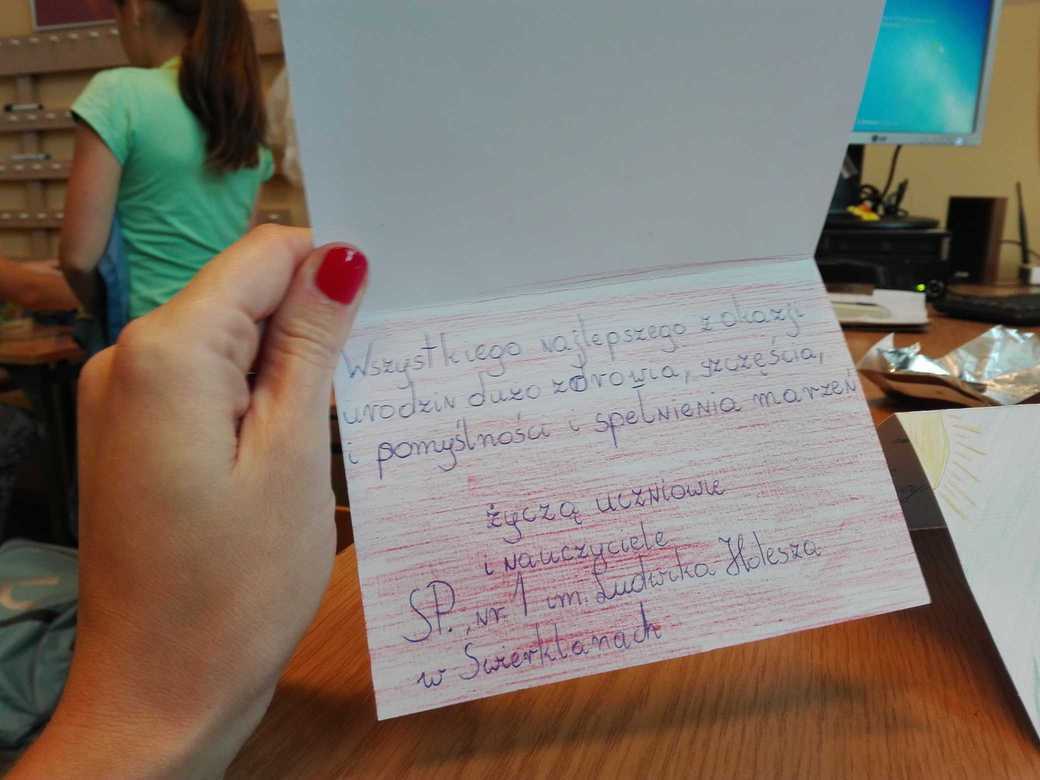 Wszystkiego najlepszego z okazji
urodzin dużo zdrowia, szczęścia,
i pomyślności i spełnienia marzeń
życzą uczniowie
i nauczyciele
SP. nr. 1 im. Ludwika Holesza
w Świerklanach
LG